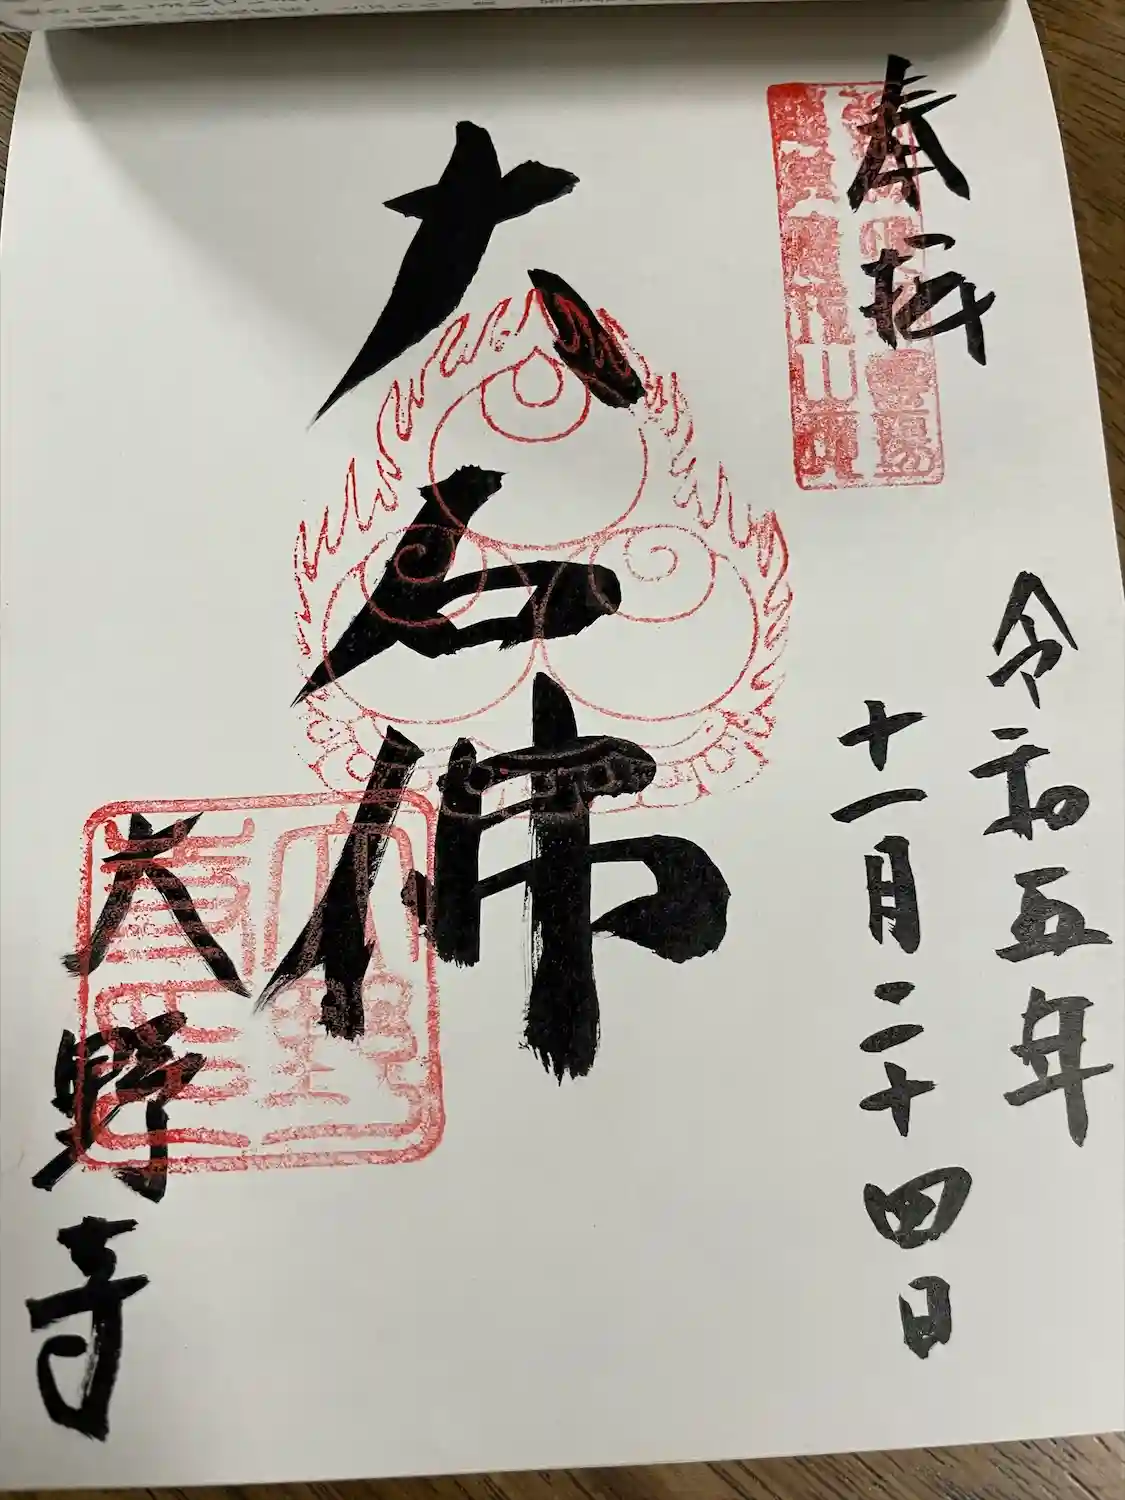 奉拝
令和五年
十一月二十四日
大石佛
大野寺